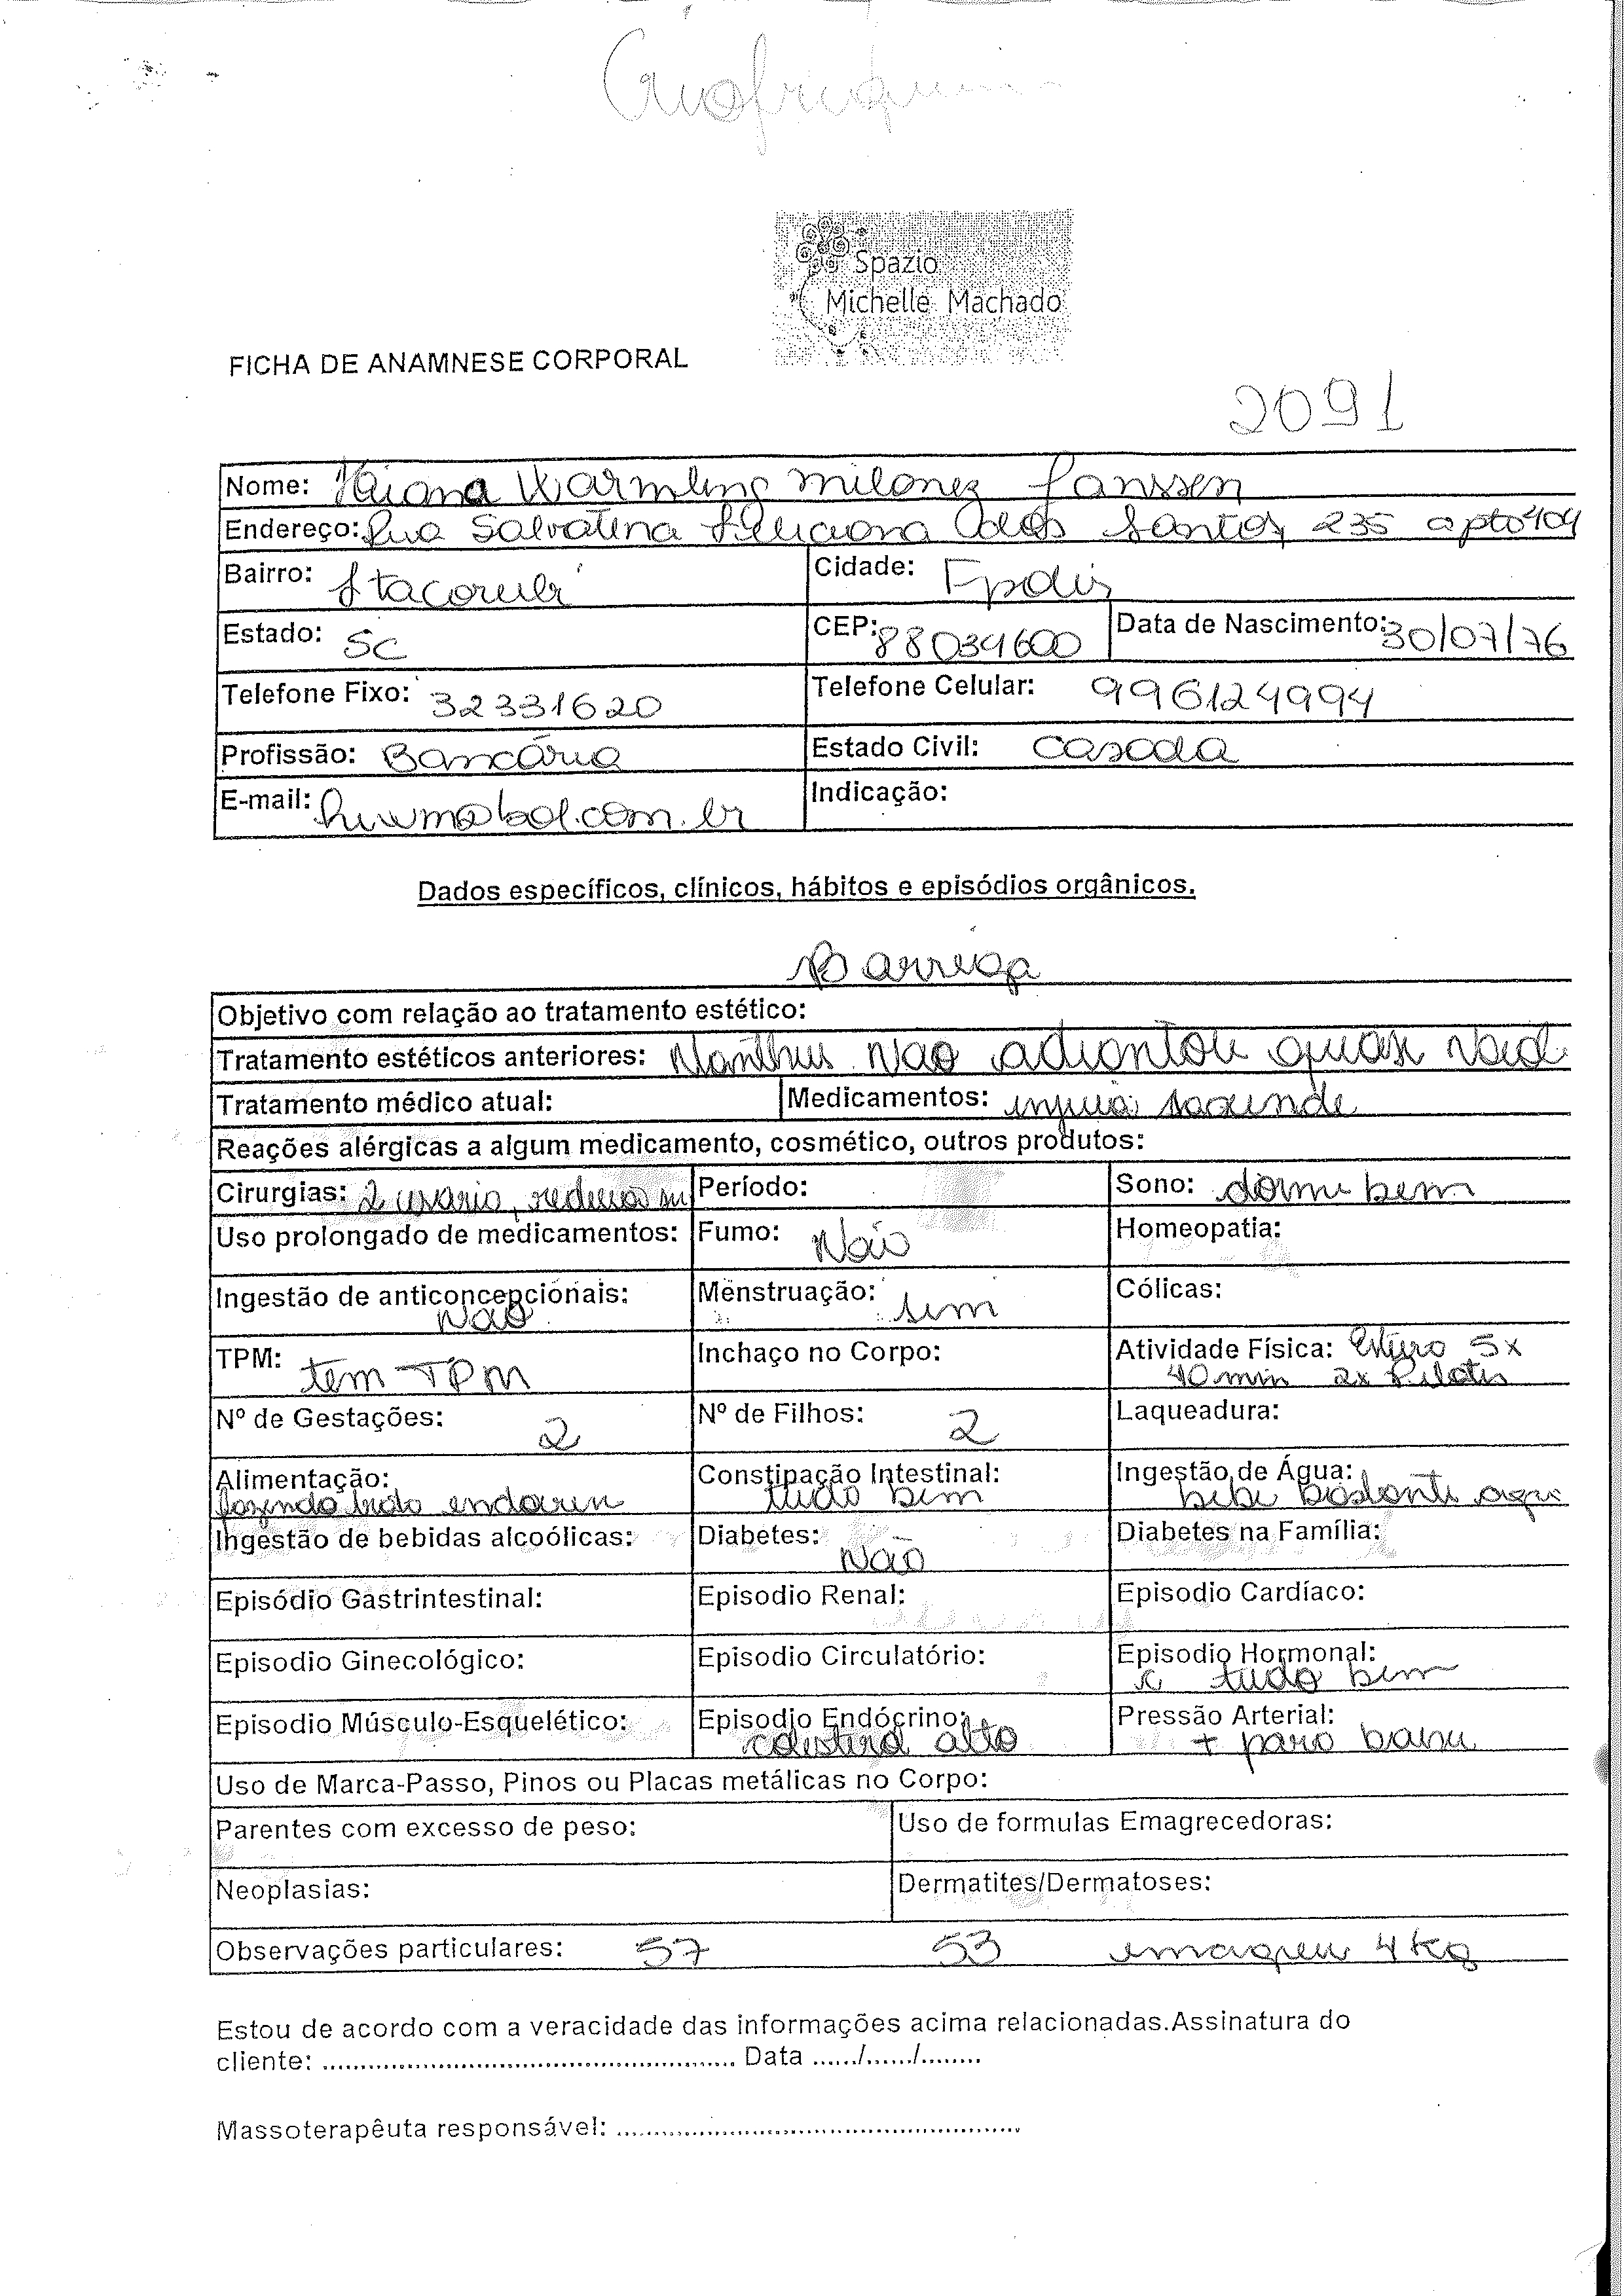 Spazio
Michelle Machado
FICHA DE ANAMNESE CORPORAL
2091
Nome: Warmling milanez Janssen
Endereço: Rua Salvatina Feliciana dos Santos 235 apto 404
Bairro: Itacorubi Cidade: Fpolis
Estado: SC CEP: 88034600 Data de Nascimento: 30/07/76
Telefone Fixo: 32331620 Telefone Celular: 996124994
Profissão: Bancária Estado Civil: casada
E-mail: @bol.com.br Indicação:
Dados específicos, clínicos, hábitos e episódios orgânicos.
Barriga
Objetivo com relação ao tratamento estético:
Tratamento estéticos anteriores: Manthus Não adiantou quase nad
Tratamento médico atual: Medicamentos:
Reações alérgicas a algum medicamento, cosmético, outros produtos:
Cirurgias: 2 Período: Sono: dorme bem
Uso prolongado de medicamentos: Fumo: Não Homeopatia:
Ingestão de anticoncepcionais: Não Menstruação: sem Cólicas:
TPM: tem TPM Inchaço no Corpo: Atividade Física: 5x
40 min 2x Pilates
Nº de Gestações: 2 Nº de Filhos: 2 Laqueadura:
Alimentação: Constipação Intestinal: Ingestão de Água:
fazendo tudo bem bebe bastante
Ingestão de bebidas alcoólicas: Diabetes: Não Diabetes na Família:
Episódio Gastrintestinal: Episodio Renal: Episodio Cardíaco:
Episodio Ginecológico: Episodio Circulatório: Episodio Hormonal: tudo bem
Episodio Músculo-Esquelético: Episodio Endócrino: colesterol alto Pressão Arterial: + para baixa
Uso de Marca-Passo, Pinos ou Placas metálicas no Corpo:
Parentes com excesso de peso: Uso de formulas Emagrecedoras:
Neoplasias: Dermatites/Dermatoses:
Observações particulares: 57 53 4 kg
Estou de acordo com a veracidade das informações acima relacionadas.Assinatura do
cliente: ........................................................ Data ....../....../........
Massoterapêuta responsável: ......................................................